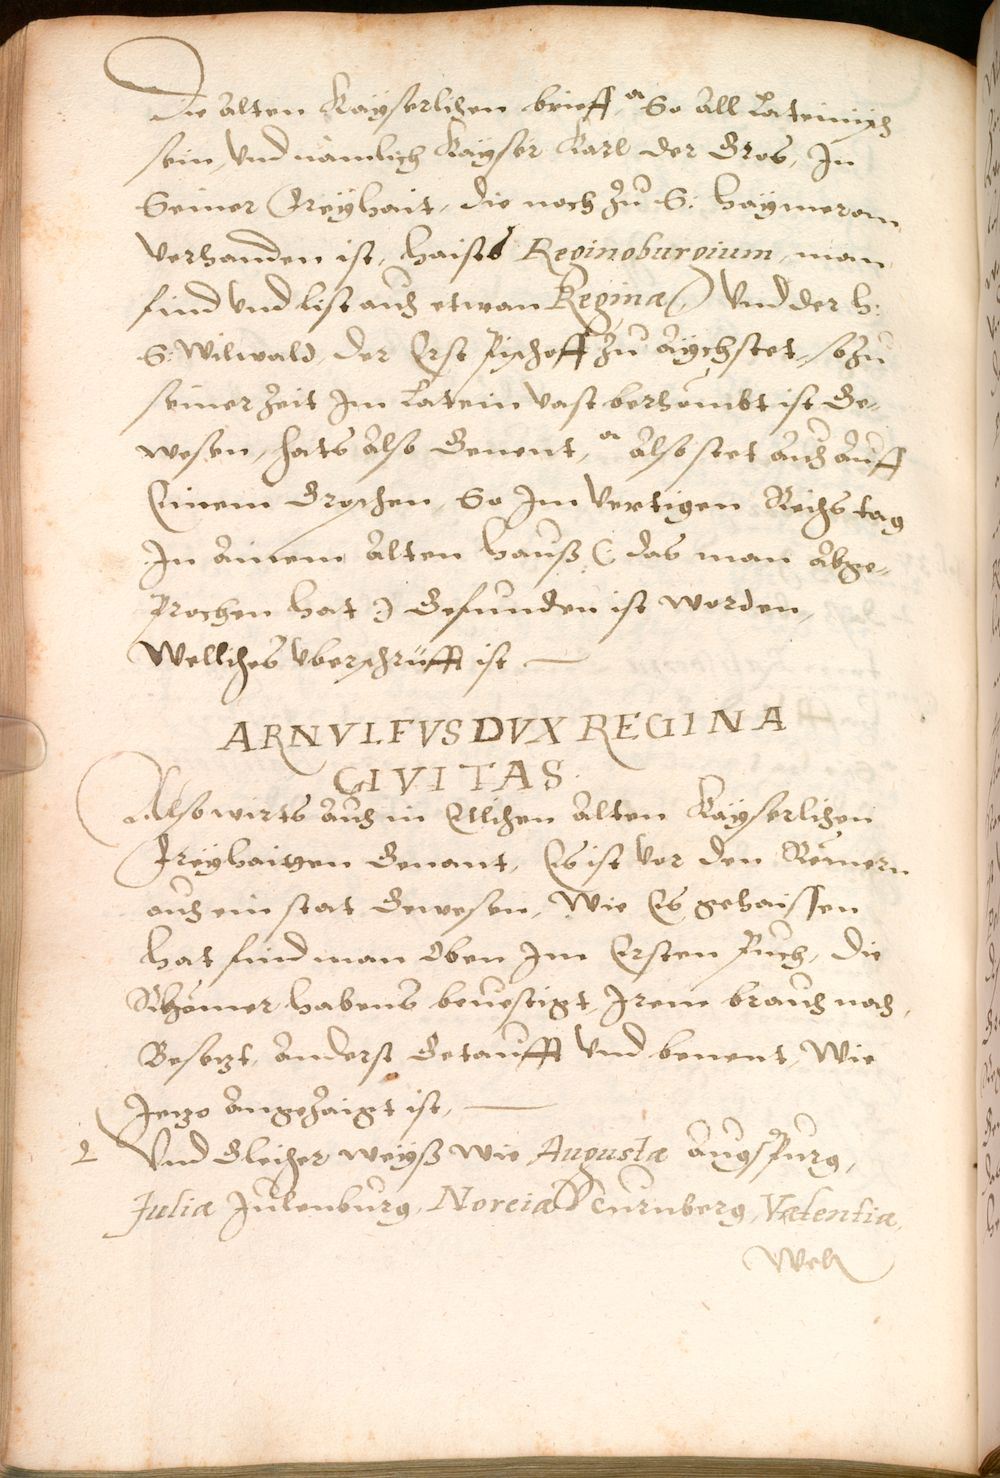 Die alten Kayserlichen brieff, So all Lateinisch
sein, Vnd nämlich Kayser Karl der Gros, In
Seiner Freyhait, die noch zu S: Haymeram
Verhanden ist, haists Reginoburgium, man
find vnd list auch etwan Reginæ, Vnd der h:
S: Wilwald, der Erst Pischoff zu Aychstet, so zu
seiner Zeit Im Latein vast berhömbt ist Ge-
wesen, hats also Genent, also stet auch auff
Einem Groschen, So Im Vertigen Reichstag
In ainem alten hauß (: das man abge-
Prochen hat :) Gefunden ist worden,
Wellches vberschrüfft ist
ARNVLFVS DVX REGINA
CIVITAS
Also wirts auch in Ettlichen alten Kayserlichen
Freyhaitten Genant, Es ist Vor den Römern
auch ein stat Gewesen, Wie Es gehaissen
hat find man Oben Im Ersten Puch, die
Rhömer habens beuestigt, Irem brauch nach,
Besetzt, anderst Getaufft Vnd benent, Wie
Jetzo angezaigt ist,
Vnd Gleicher weyß wie Augusta Augspurg,
Julia Julenburg, Noreia Neurnberg, Valentia,
Wels